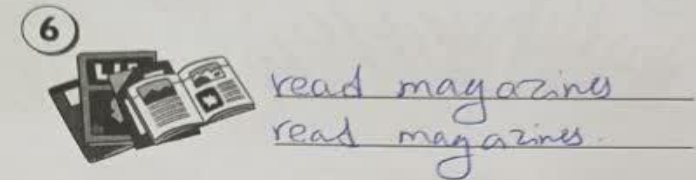 6
read magazines
read magazines.